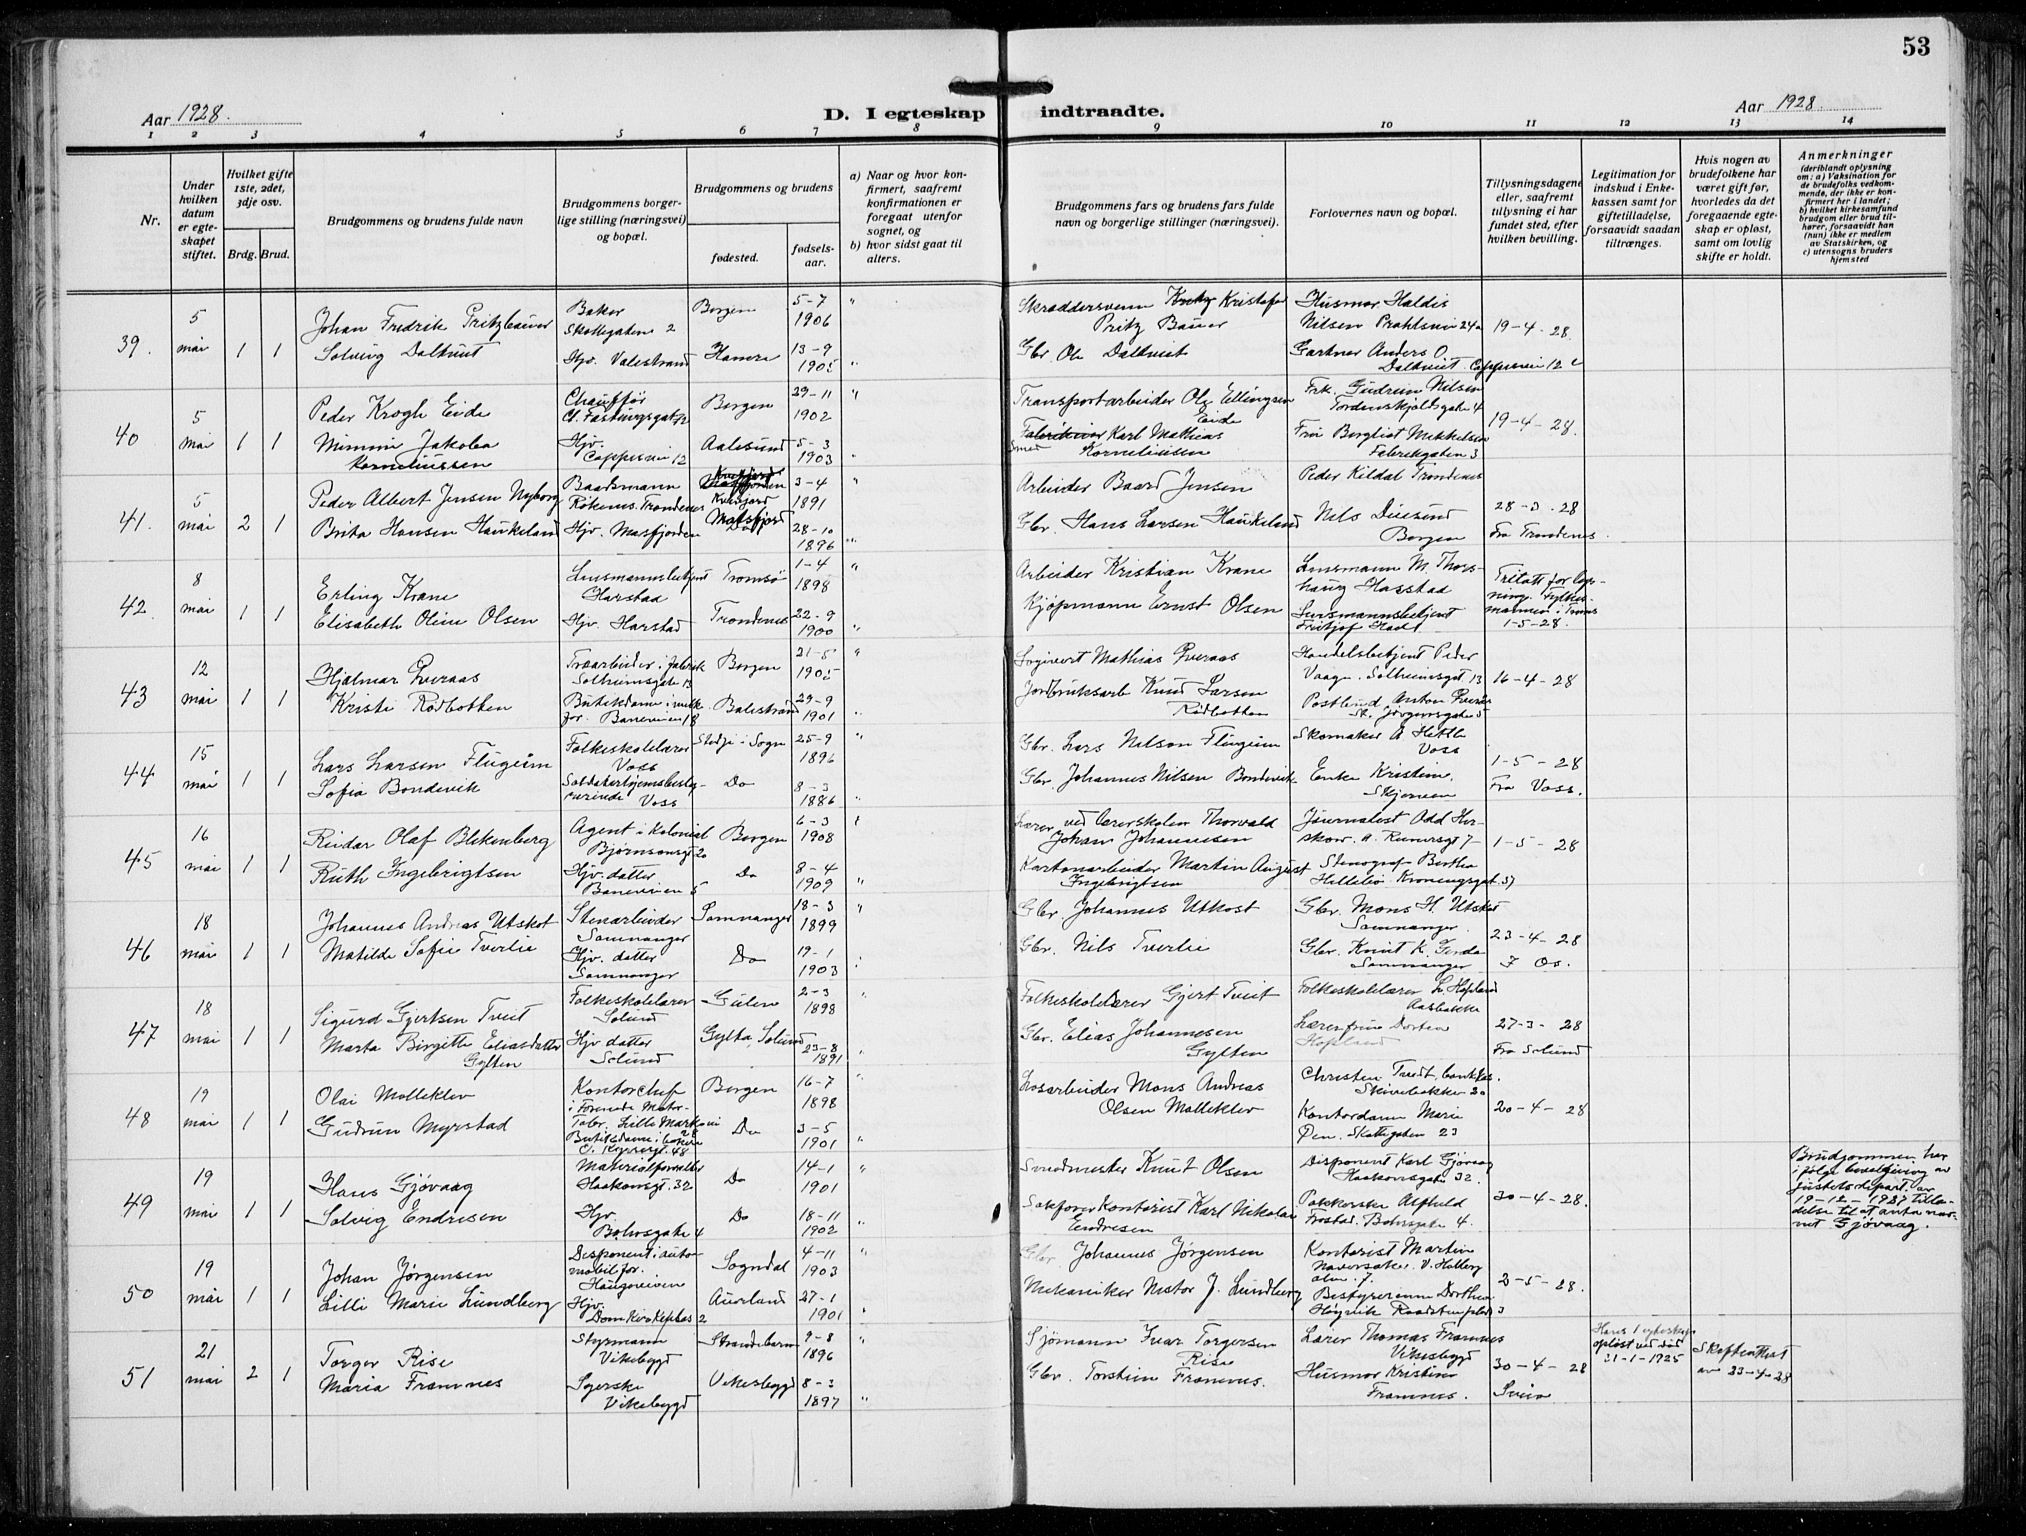 53
Aar 1928.
D. I egteskap indtraadte.
Aar 1928.
1 2 3 4 5 6 7 8 9 10 11 12 13 14
Nr.
Under hvilken datum er egteskapet stiftet.
Hvilket gifte 1ste, 2det, 3dje osv.
Brdg. Brud.
Brudgommens og brudens fulde navn
Brudgommens borgerlige stilling (næringsvei) og bopæl.
Brudgommens og brudens
fødested.
fødselsaar.
a) Naar og hvor konfirmert, saafremt konfirmationen er foregaat utenfor sognet, og
b) hvor sidst gaat til alters.
Brudgommens fars og brudens fars fulde navn og borgerlige stillinger (næringsvei).
Forlovernes navn og bopæl.
Tillysningsdagene eller, saafremt tillysning ei har fundet sted, efter hvilken bevilling.
Legitimation for indskud i Enkekassen samt for giftetilladelse, forsaavidt saadan tiltrænges.
Hvis nogen av brudefolkene har været gift før, hvorledes da det foregaaende egteskap er opløst, samt om lovlig skifte er holdt.
Anmerkninger
(deriblandt oplysning om: a) Vaksination for de brudefolks vedkommende, der ikke er konfirmert her i landet;
b) hvilket kirkesamfund brudgom eller brud tilhører, forsaavidt han (hun) ikke er medlem av Statskirken, og
c) utensogns bruders hjemsted
39. 5 mai 1 1
Johan Fredrik Pritzbauer
Solveig Daltveit
Baker
Skottegaten 2
Hjv. Valestrand
Bergen 5-7 1906 "
Hamre 13-9 1905 "
Skræddersvenn Kristofer
Pritz Bauer
Gbr. Ole Daltveit
Husmor Haldis
Nilsen Prahlsvei 24a
Gartner Anders O.
Daltveit. Cappesvei 12c
19-4-28.
40 5 mai 1 1
Peder Krogh Eide
Mimmi Jakoba
Korneliussen
Chauffør
C. Fastingsgat 12
Hjv.
Cappesvei 12
Bergen 29-11 1902 "
Aalesund 5-3 1903 "
Transportarbeider Ole Ellingsen
Eide
Fabrikeier Karl Mathias
Smed Korneliussen
Frk. Gudrun Nilsen
Tordenskjoldsgate 4
Frø Bergliot Mikkelsen
Fabrikgaten 3
19-4-28.
41. 5 mai 2 1
Peder Albert Jensen Nyborg
Brita Hansen Haukeland
Baadsmann
Røkenes. Trondenes
Hjv. Masfjorden
Kvæfjord 3-4 1891 "
Masfjord 28-10 1896 "
Arbeider Baard Jensen
Gbr. Hans Larsen Haukeland
Peder Kildal Trondenes
Nils Duesund
Bergen
28-3-28
Fra Trondenes.
42. 8 mai 1 1
Erling Krane
Elisabeth Oline Olsen
Lensmannsbetjent
Harstad
Hjv. Harstad
Tromsø 1-4 1898 "
Trondenes 22-9 1900 "
Arbeider Kristian Krane
Kjøpmann Ernst Olsen
Lensmann M. Thorshaug Harstad
Lensmannsbetjent
Fritjof Hadt
Tillatt for lysning. Fylkesmannen i Troms
1-5-28.
43 12 mai 1 1
Hjalmar Kveraas
Kristi Rødbotten
Træarbeider i fabrik
Solheimsgate 13
Butikdame i melkfor. Baneveien 18
Bergen 21-5 1905 "
Balestrand 29-9 1901 "
Sogivert Mathias Kveraas
Jordbruksarb Knud Larsen
Rødbotten
Handelsbetjent Peder
Vaage. Solheimsgt 13
Postbud Anton Kveraas
St. Jørgensgate 5
16-4-28
44 15 mai 1 1
Lars Larsen Flugeim
Sofia Bondevik
Folkeskolelærer
Voss
Soldaterhjemsbestyrerinde Voss
Stedje i Sogn 25-9 1896 "
Do 8-3 1886 "
Gbr. Lars Nilson Flugeim
Gbr. Johannes Nilsen Bondevik
Skomaker A Hettle
Voss
Enke Kristine
Skjerven
1-5-28
Fra Voss.
45 16 mai 1 1
Reidar Olaf Blekenberg
Ruth Ingebrigtsen
Agent i Kolonial
Bjørnsonsgt 20
Hjv. datter
Baneveien 5
Bergen 6-3 1908 "
Do 8-4 1909 "
Lærer ved Lærerskolen Thorvald
Johan Johannesen
Kartonarbeider Martin August
Ingebrigtsen
Journalist Odd Herskow. A. Reimersgt 7
Stenograf Bertha
Hillebø. Kroneingsgat. 57
1-5-28
46 18 mai 1 1
Johannes Andreas Utskot
Matilde Sofie Tverlie
Stenarbeider
Samnanger
Hjv. datter
Samnanger
Samnanger 18-3 1899 "
Do 19-1 1903 "
Gbr. Johannes Utkost
Gbr. Nils Tverlie
Gbr. Mons H. Utskot
Samnanger
Gbr. Knut K. Gerde
Samnanger
23-4-28
I Os.
47 18 mai 1 1
Sigurd Gjertsen Tveit
Marta Birgitte Eliasdatter
Gylten
Folkeskolelærer
Solund
Hjv datter
Solund
Gulen 2-3 1898 "
Gylta, Solund 23-8 1891 "
Folkeskolelærer Gjert Tveit
Gbr. Elias Johannesen
Gylten
Folkeskolelærer L. Hopland
Aasbakke
Lærerfrue Dortea
Hopland
27-3-28
Fra Solund
48 19 mai 1 1
Olai Molleklev
Gudrun Myrstad
Kontorchef
i Forenede Motorfabr. Lille Markevei 28
Butikdame i bakeri
C. Krohnsgt. 48
Bergen 16-7 1898 "
Do 3-5 1901 "
Løsarbeider Mons Andreas
Olsen Molleklev
Christen Tvedt, bankkas.
Skivebakken 20
Kontordame Marie
Øen. Skottegaten 23
20-4-28
49 19 mai 1 1
Hans Gjøvaag
Solvig Endresen
Materialforvalter
Haakonsgt. 32
Hjv.
Bohrsgate 4
Do 14-1 1901 "
Do 18-11 1902 "
Smedmester Knut Olsen
Sakfører Kontorist Karl Nikolai
Endresen
Disponent Karl Gjøvaag
Haakonsgate 32.
Pakkerske Alfhild
Frostad. Bohrsgate 4.
30-4-28.
Brudgommen har
i følge bevilgning av
justitsdepart. av
19-12-1927 tilladelse til at anta navnet Gjøvaag.
50 19 mai 1 1
Johan Jørgensen
Lilli Marie Lundberg
Disponent i automobilfor.
Haugeveien
Hjv.
Domkirkeplas 2
Sogndal 4-11 1903 "
Aurland 27-1 1901 "
Gbr Johannes Jørgensen
Mekaniker Nestor J. Lundberg
Kontorist Martin
Naversaker. V. Holbergalm. 7.
Bestyrerinne Dorthea
Høyvik Raadstuplads 3
2-5-28.
51 21 mai 2 1
Torger Rise
Maria Framnes
Styrmann
Vikebygd
Syerske
Vikebygd
Strandebarm 9-8 1896 "
Vikebygd 8-3 1897 "
Sjømann Ivar Torgersen
Rise
Gbr. Torstein Framnes.
Lærer Thomas Framnes
Vikebygd
Husmor Kristine
Framnes.
30-4-28
Sveio
Hans 1 egteskap
opløst ved død
21-1-1925
Skifteattest
av 23-4-28